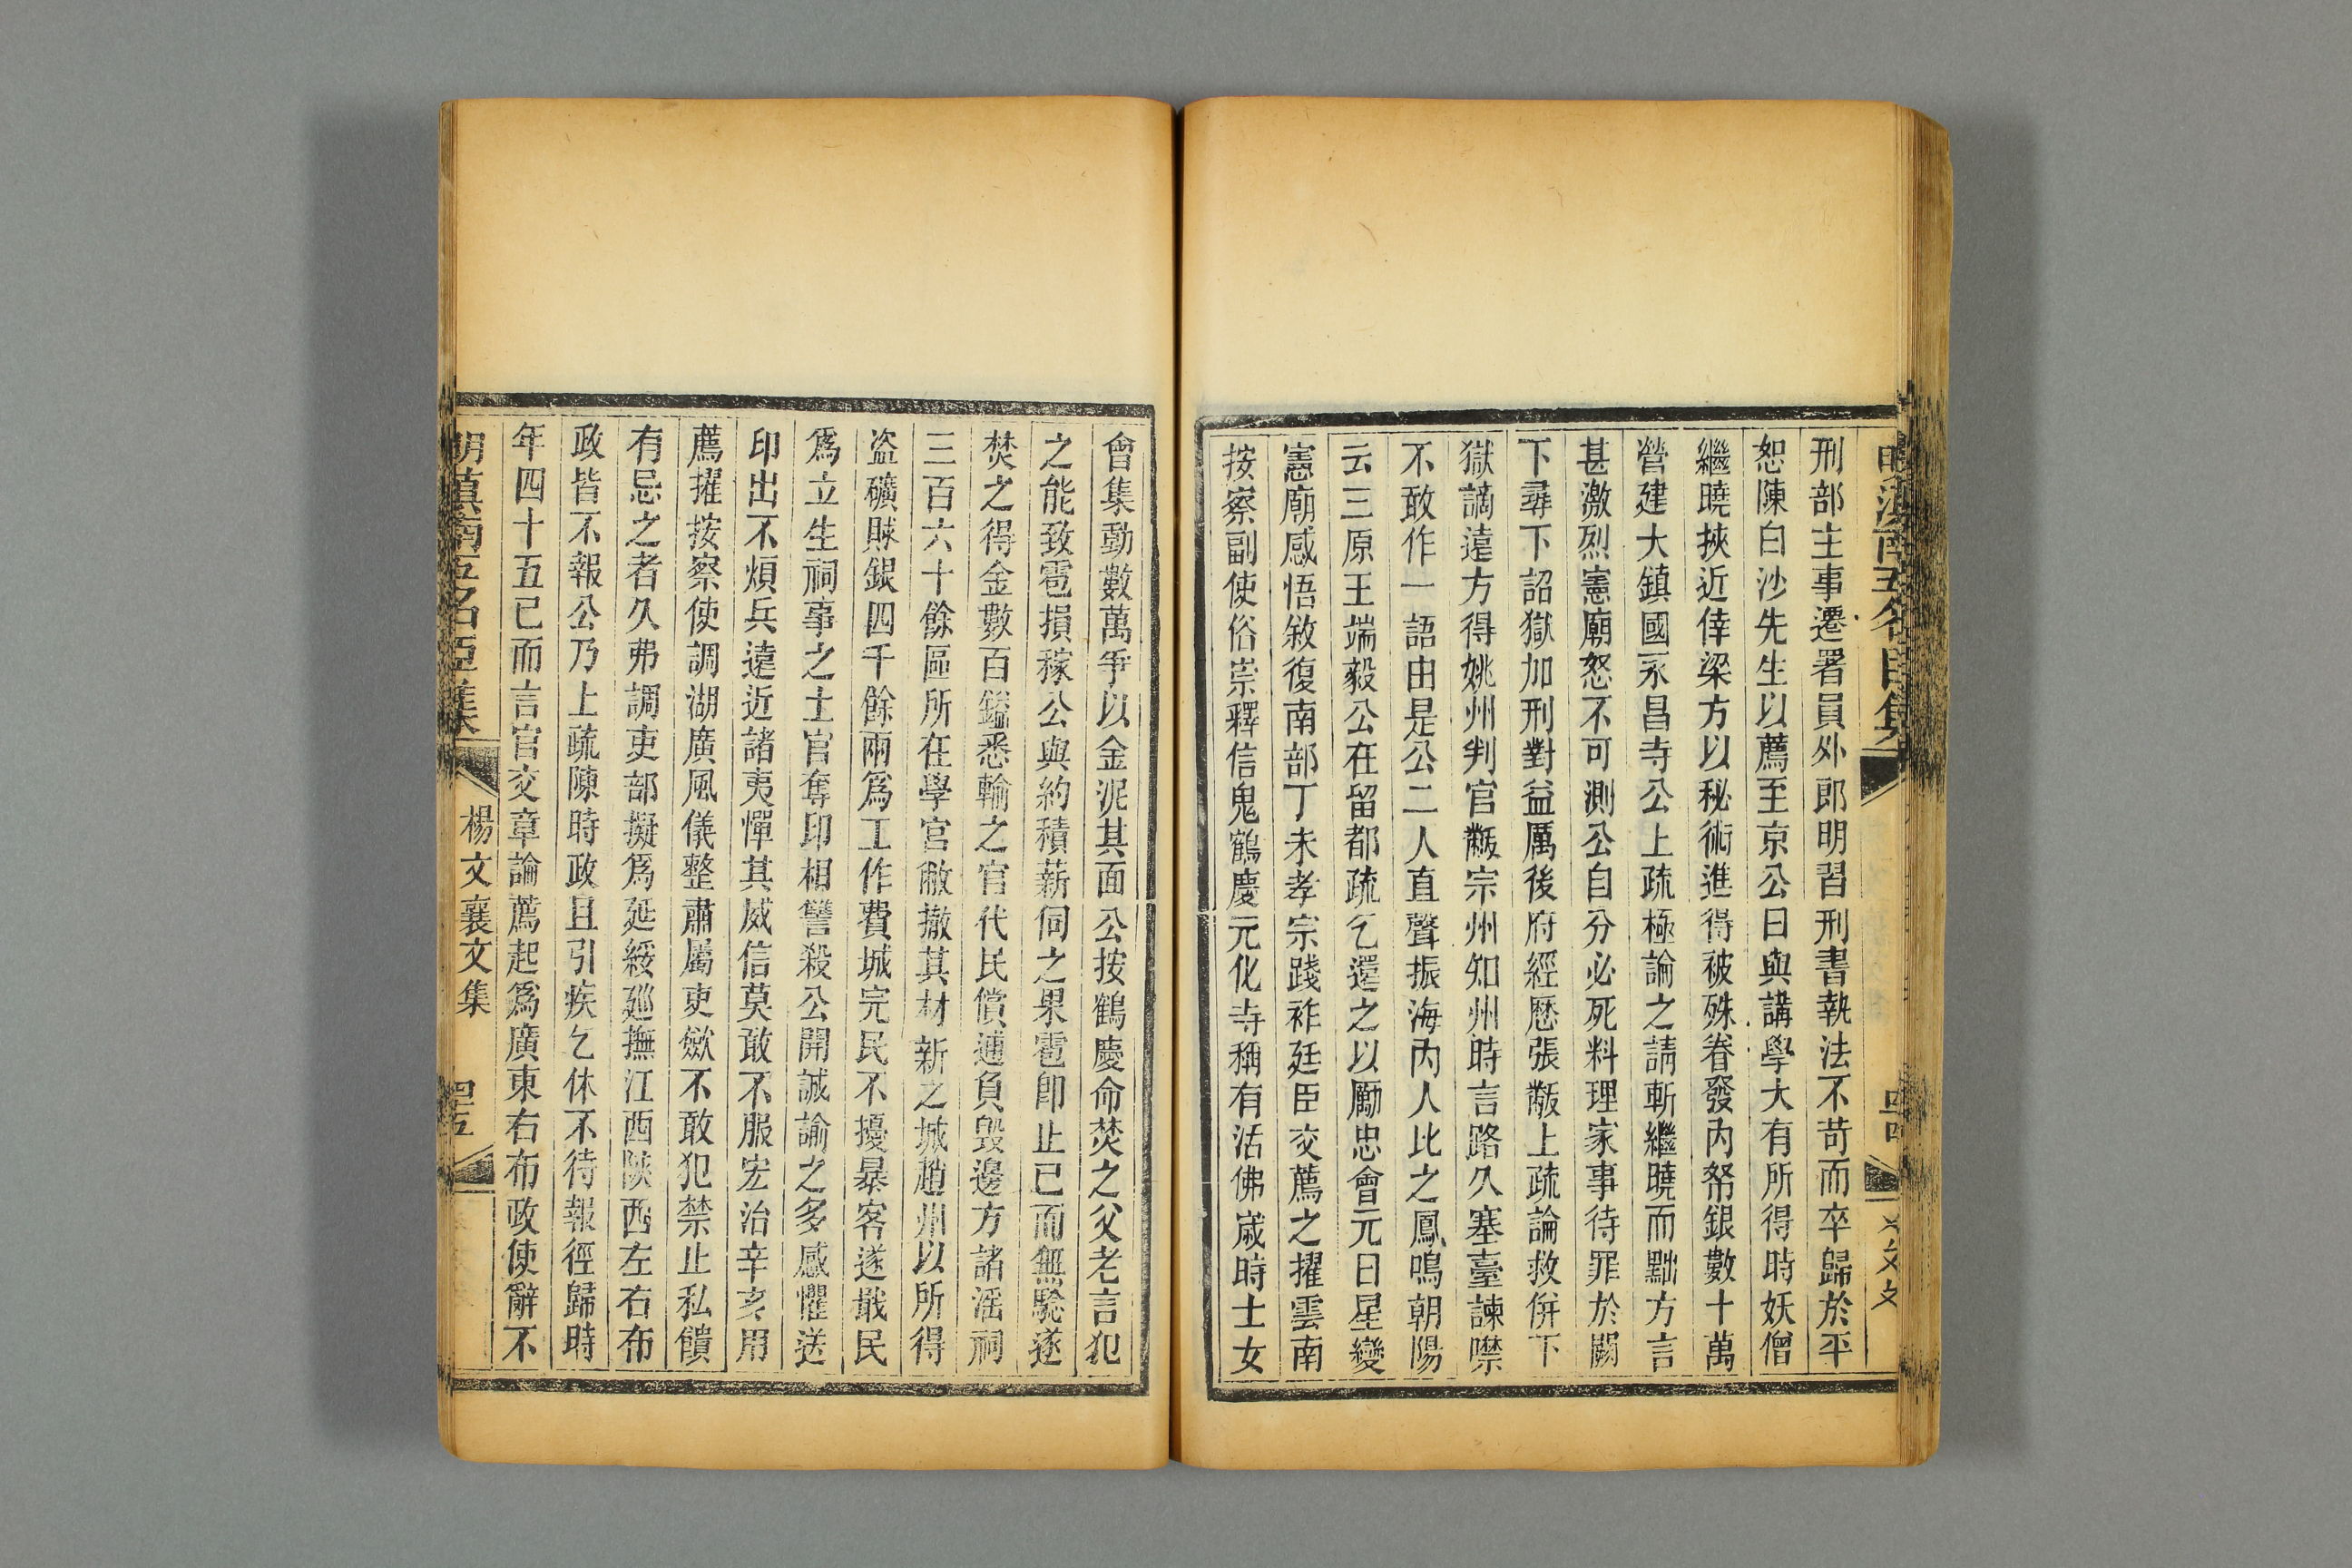 刑部主事遷署員外郎明習刑書執法不苛而卒歸於平
恕陳白沙先生以薦至京公日與講學大有所得時妖僧
繼曉挾近倖梁方以秘術進得被殊眷發內帑銀數十萬
營建大鎮國永昌寺公上疏極論之請斬繼曉而黜方言
甚激烈憲廟怒不可測公自分必死料理家事待罪於闕
下尋下詔獄加刑對益厲後府經歷張黻上疏論救併下
獄謫遠方得姚州判官黻宗州知州時言路久塞臺諫噤
不敢作一語由是公二人直聲振海內人比之鳳鳴朝陽
云三原王端毅公在留都疏乞還之以勵忠會元日星變
憲廟感悟敘復南部丁未孝宗踐祚廷臣交薦之擢雲南
按察副使俗崇釋信鬼鶴慶元化寺稱有活佛歲時士女
會集動數萬爭以金泥其面公按鶴慶命焚之父老言犯
之能致雹損稼公與約積薪伺之果雹卽止已而無驗遂
焚之得金數百鎰悉輸之官代民償逋負毀邊方諸淫祠
三百六十餘區所在學宮敝撤其材新之城趙州以所得
盜礦賍銀四千餘兩爲工作費城完民不擾暴客遂戢民
爲立生祠事之土官奪印相讐殺公開誠諭之多感懼送
印出不煩兵遠近諸夷憚其威信莫敢不服宏治辛亥用
薦擢按察使調湖廣風儀整肅屬吏歛不敢犯禁止私饋
有忌之者久弗調吏部擬爲延綏廵撫江西陝西左右布
政皆不報公乃上疏陳時政且引疾乞休不待報徑歸時
年四十五已而言官交章論薦起爲廣東右布政使辭不
明滇南五名臣集
楊文襄文集